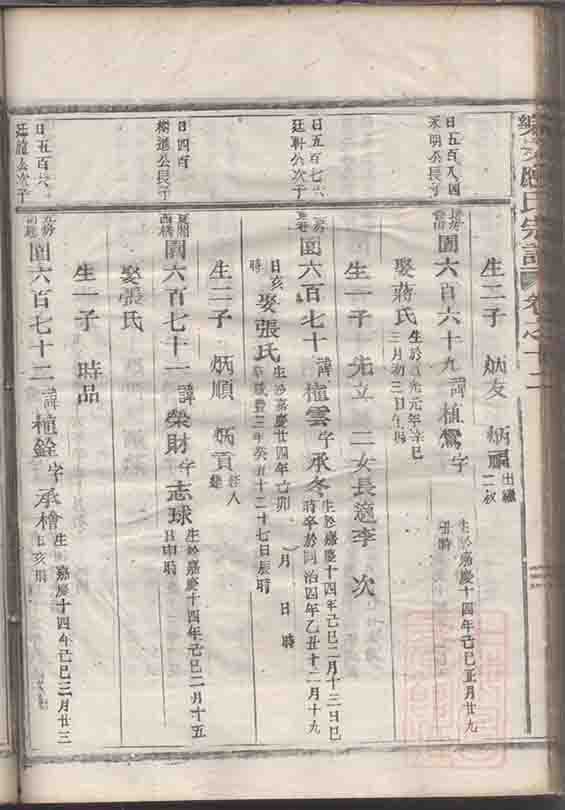 應氏宗譜 卷之十二
生二子 炳友 炳 出繼二叔
日五百八四
永明公長子
園六百六十九 諱植鴛 字
生於嘉慶十四年己巳正月廿九
丑時
娶蔣氏
生於 光元年辛巳
三月初三日午時
生一子 先立 二女長適李 次
日五百七六
廷軒公次子
園六百七十 諱植雲 字承冬
生於嘉慶十四年己巳二月十三日巳
時卒於同治四年乙丑十二月十九
日亥時
娶張氏
生於嘉慶廿四年己卯 月 日 時
卒咸豐三年癸丑十二十七日辰時
生二子 炳順 炳貢
日四百
公長子
園六百七十一 諱榮財 字志球
生於嘉慶十四年己巳二月十五
日申時
娶張氏
生一子 時品
日五百六
廷龍公次子
園六百七十二 諱植銓 字承檜
生嘉慶十四年己巳三月廿三
日亥時